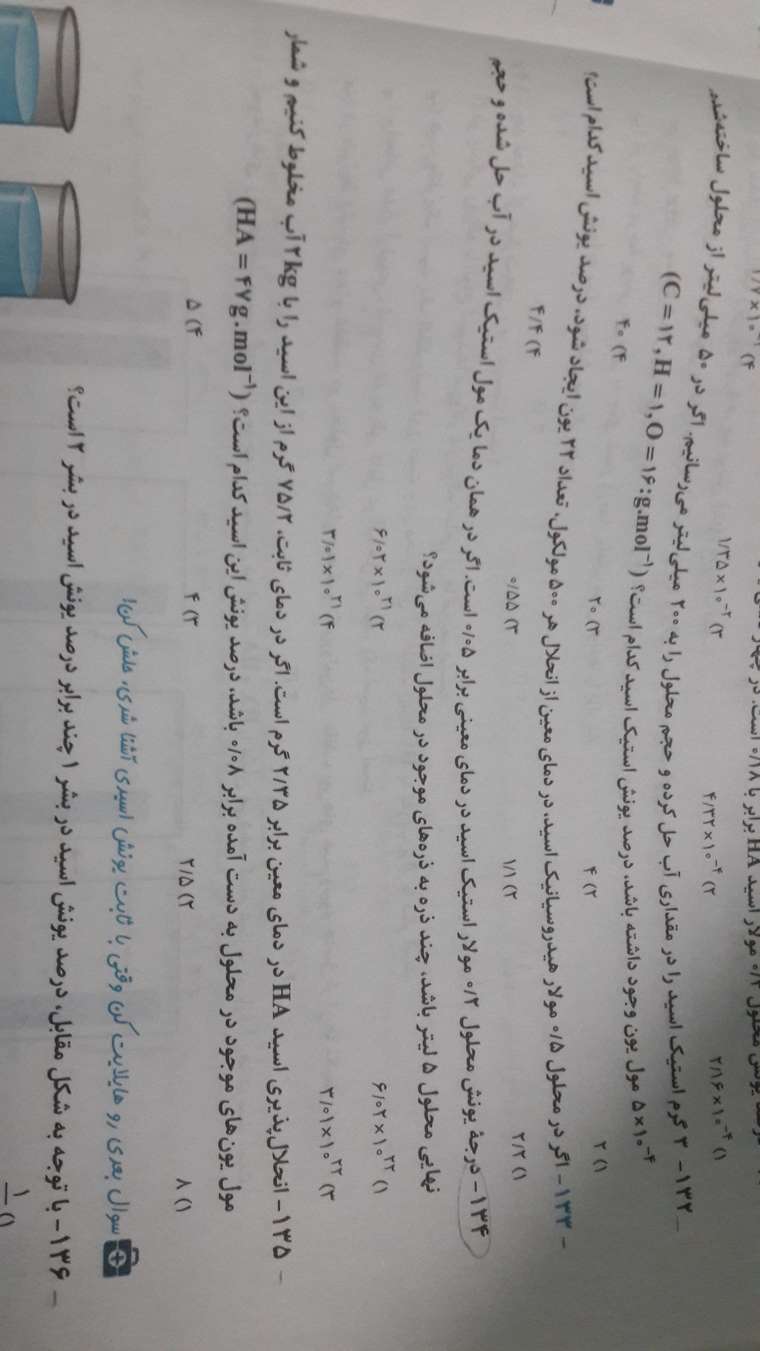 مولار اسید HA برابر با ۰/۱۸ است. در
۱) ۲/۱۶×۱۰⁻۴ ۲) ۴/۳۲×۱۰⁻۴ ۳) ۱/۳۵×۱۰⁻۲ ۴)
۱۳۲- ۳ گرم استیک اسید را در مقداری آب حل کرده و حجم محلول را به ۲۰۰ میلی‌لیتر می‌رسانیم. اگر در ۵۰ میلی‌لیتر از محلول ساخته‌شده،
۵×۱۰⁻۴ مول یون وجود داشته باشد، درصد یونش استیک اسید کدام است؟ (C = ۱۲, H = ۱, O = ۱۶ : g.mol⁻¹)
۱) ۲ ۲) ۴ ۳) ۲۰ ۴) ۴۰
۱۳۳- اگر در محلول ۰/۵ مولار هیدروسیانیک اسید، در دمای معین از انحلال هر ۵۰۰ مولکول، تعداد ۲۲ یون ایجاد شود، درصد یونش اسید کدام است؟
۱) ۲/۲ ۲) ۱/۱ ۳) ۰/۵۵ ۴) ۴/۴
۱۳۴- درجهٔ یونش محلول ۰/۲ مولار استیک اسید در دمای معینی برابر ۰/۰۵ است. اگر در همان دما یک مول استیک اسید در آب حل شده و حجم
نهایی محلول ۵ لیتر باشد، چند ذره به ذره‌های موجود در محلول اضافه می‌شود؟
۱) ۶/۰۲×۱۰²² ۲) ۶/۰۲×۱۰²¹ ۳) ۳/۰۱×۱۰²² ۴) ۳/۰۱×۱۰²¹
۱۳۵- انحلال‌پذیری اسید HA در دمای معین برابر ۲/۳۵ گرم است. اگر در دمای ثابت، ۷۵/۲ گرم از این اسید را با ۲kg آب مخلوط کنیم و شمار
مول یون‌های موجود در محلول به دست آمده برابر ۰/۰۸ باشد، درصد یونش این اسید کدام است؟ (HA = ۴۷g.mol⁻¹)
۱) ۸ ۲) ۲/۵ ۳) ۴ ۴) ۵
سوال بعدی رو هایلایت کن وقتی با ثابت یونش اسیدی آشنا شدی، حلش کن!
۱۳۶- با توجه به شکل مقابل، درصد یونش اسید در بشر ۱ چند برابر درصد یونش اسید در بشر ۲ است؟
۱)